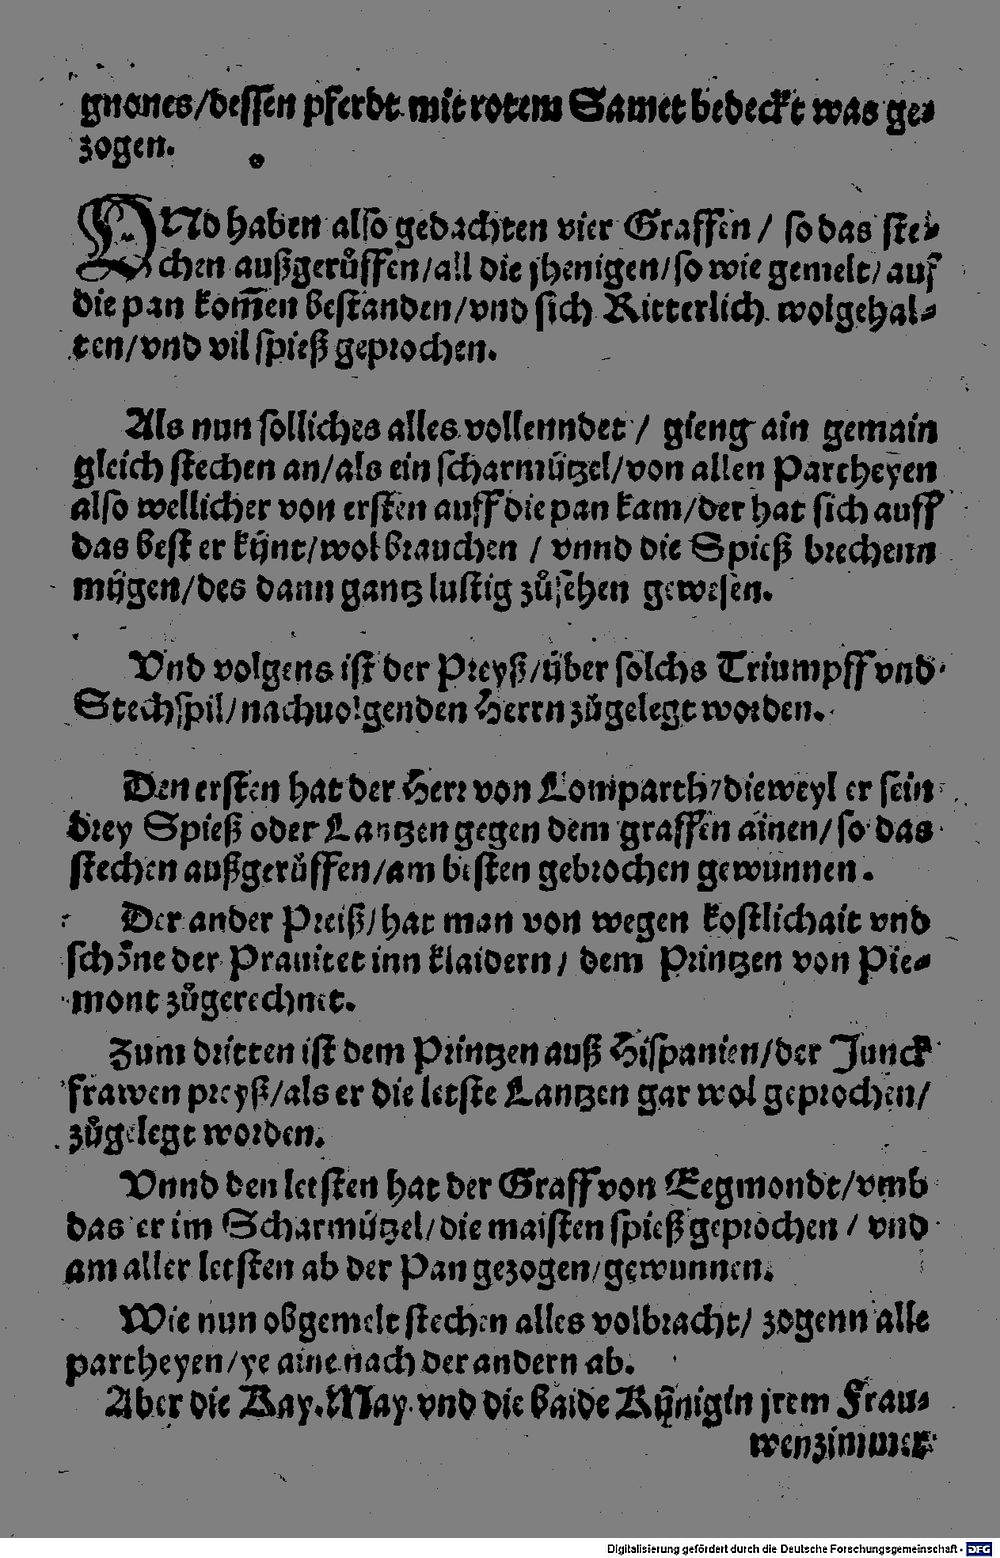 gnones/dessen pferdt mit rotem Samet bedeckt was ge-
zogen.
VNd haben also gedachten vier Graffen / so das ste-
chen außgerůffen/all die jhenigen/so wie gemelt/ auf
die pan kom̄en bestanden/vnd sich Ritterlich wolgehal-
ten/vnd vil spieß geprochen.
Als nun solliches alles vollenndet / gieng ain gemain
gleich stechen an/als ein scharmützel/von allen Partheyen
also wellicher von ersten auff die pan kam/der hat sich auff
das best er künt/wol brauchen / vnnd die Spieß brechenn
mügen/des dann gantz lustig zůsehen gewesen.
Vnd volgens ist der Preyß/über solchs Triumpff vnd
Stechspil/nachuolgenden Herrn zůgelegt worden.
Den ersten hat der Herr von Lomparth/dieweyl er sein
drey Spieß oder Lantzen gegen dem graffen ainen/so das
stechen außgerůffen/am besten gebrochen gewunnen.
Der ander Preiß/hat man von wegen kostlichait vnd
schöne der Prauitet inn klaidern/ dem Printzen von Pie-
mont zůgerechnet.
Zum dritten ist dem Printzen auß Hispanien/der Junck
frawen preyß/als er die letste Lantzen gar wol geprochen/
zůgelegt worden.
Vnnd den letsten hat der Graff von Eegmondt/vmb
das er im Scharmützel/die maisten spieß geprochen / vnd
am aller letsten ab der Pan gezogen/gewunnen.
Wie nun obgemelt stechen alles volbracht/ zogenn alle
partheyen/ye aine nach der andern ab.
Aber die Kay. May. vnd die baide Künigin jrem Frau-
wenzimmer
Digitalisierung gefördert durch die Deutsche Forschungsgemeinschaft - DFG